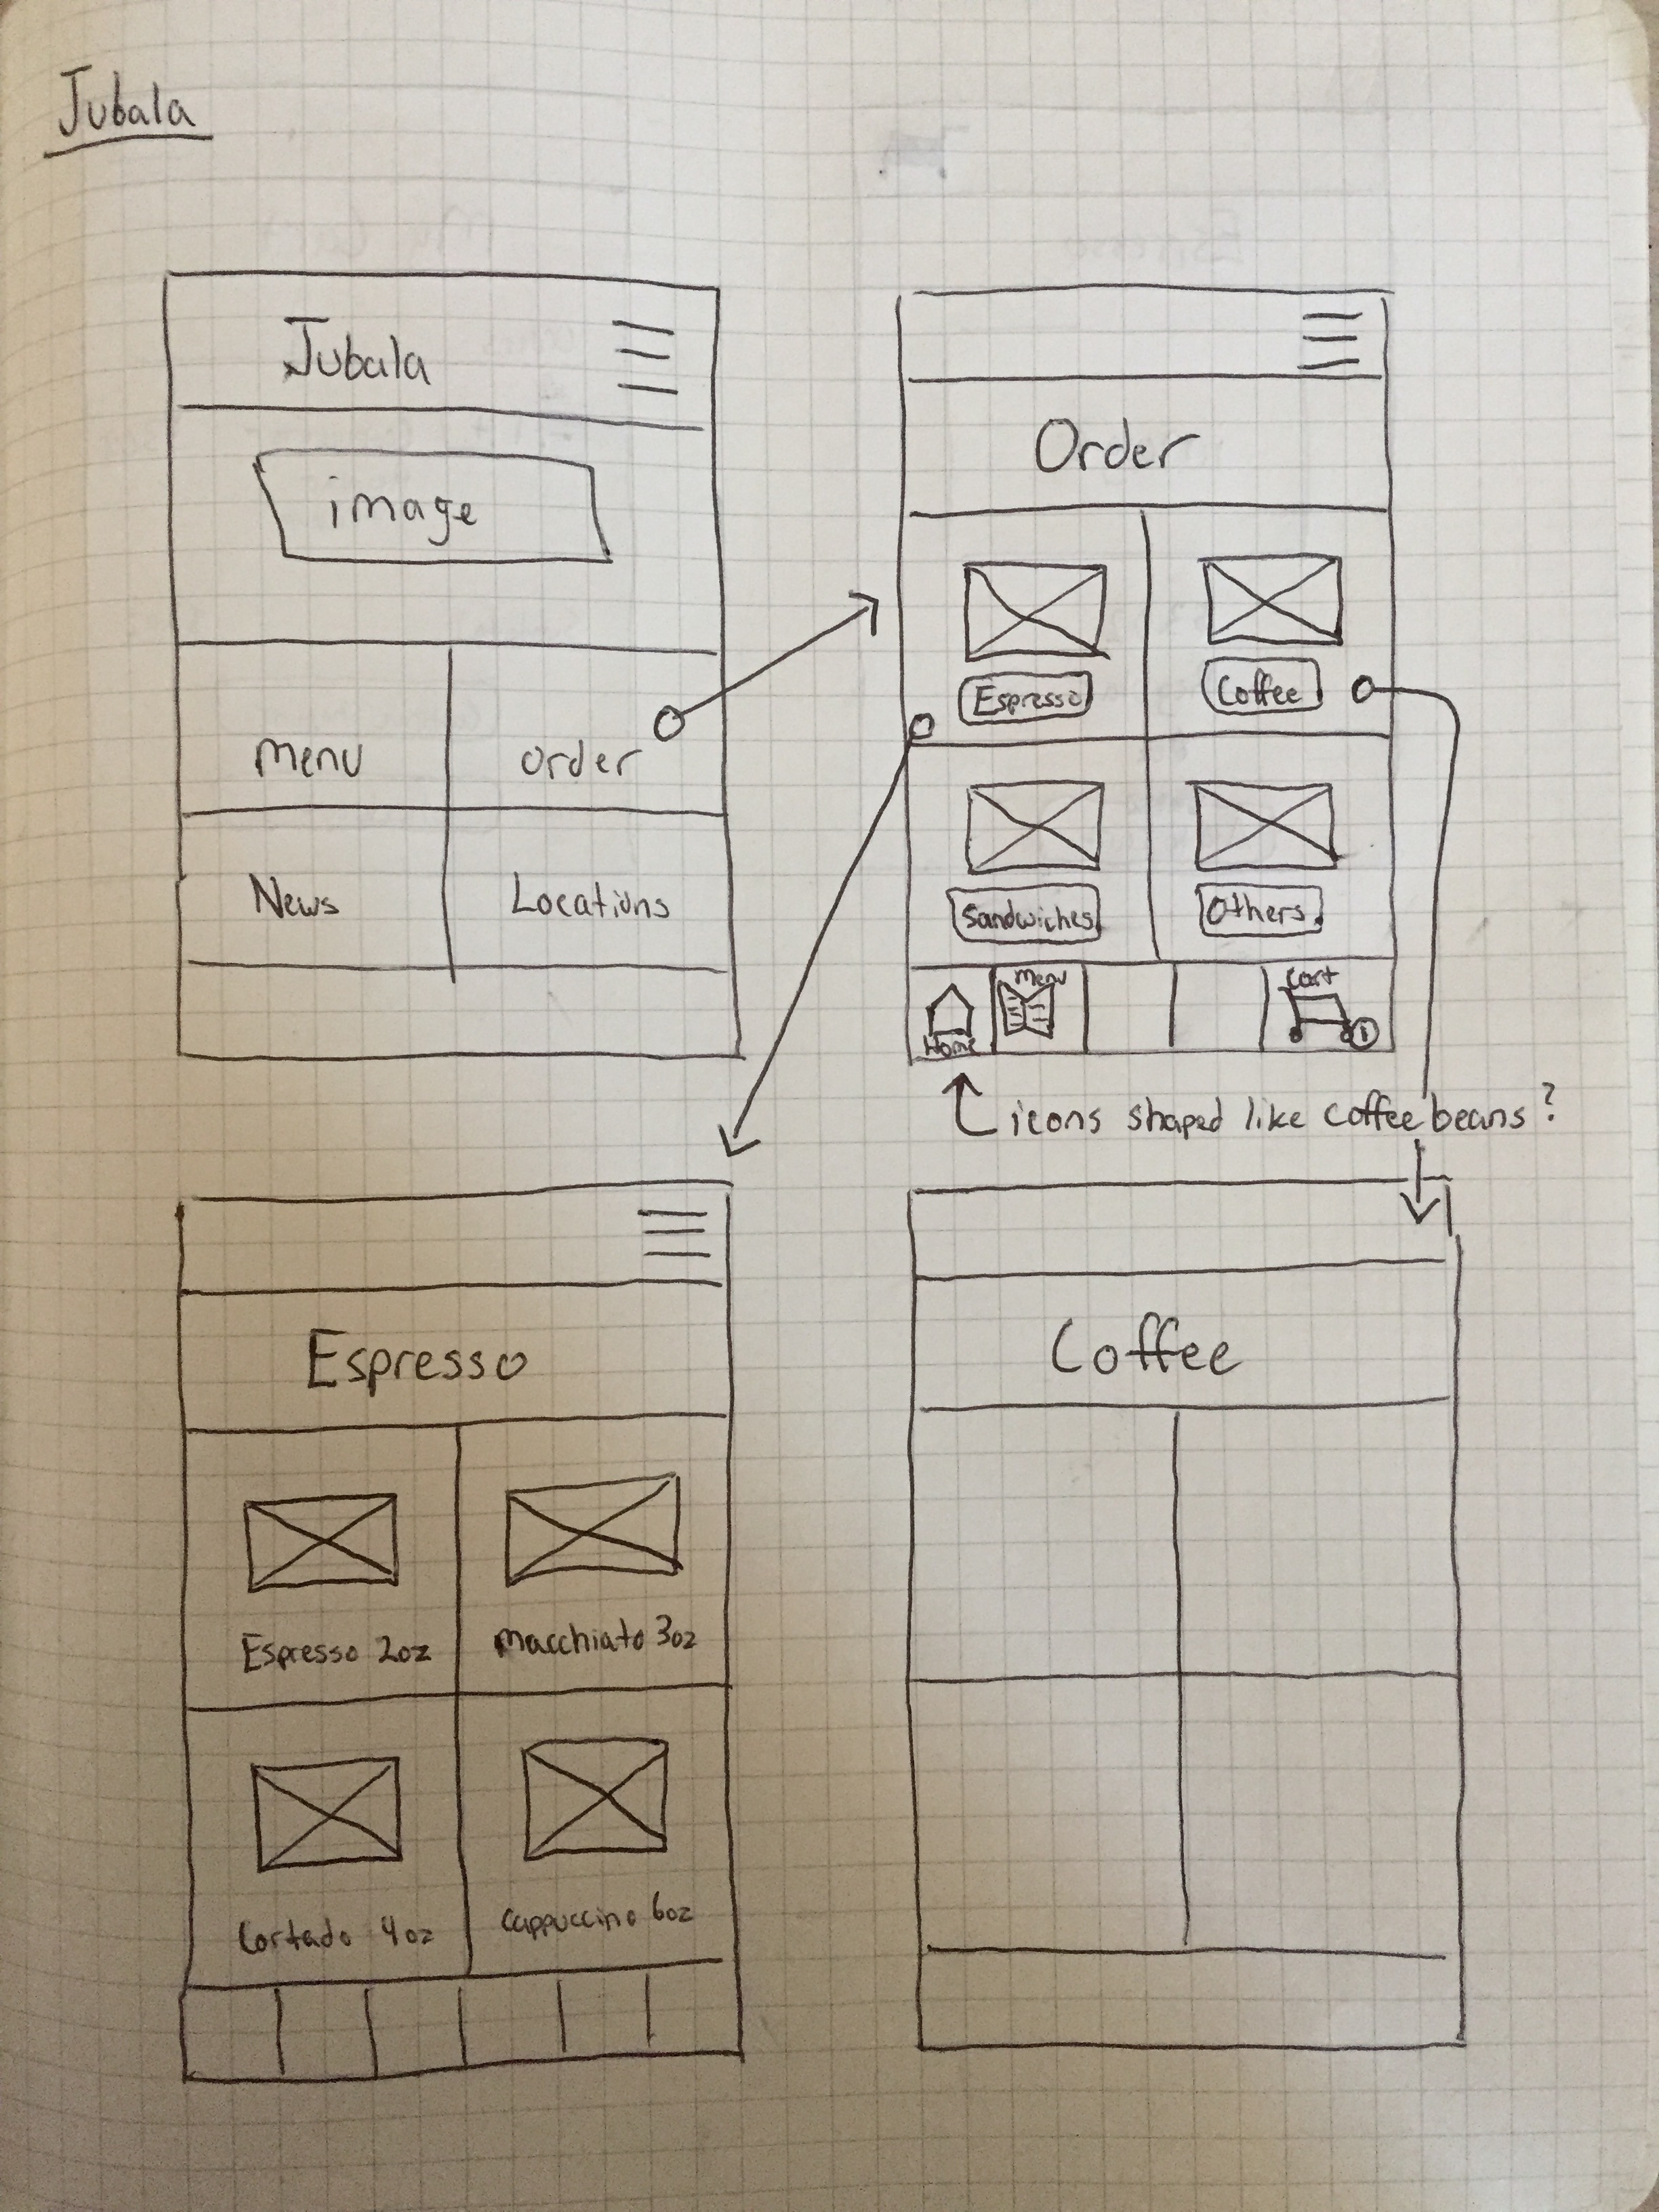 Jubala
Jubala
image
menu
order
News
Locations
Order
Espresso
Coffee
Sandwiches
Others
Home
Menu
Cart
1
icons shaped like coffee beans?
Espresso
Espresso 2oz
Macchiato 3oz
Cortado 4oz
Cappuccino 6oz
Coffee